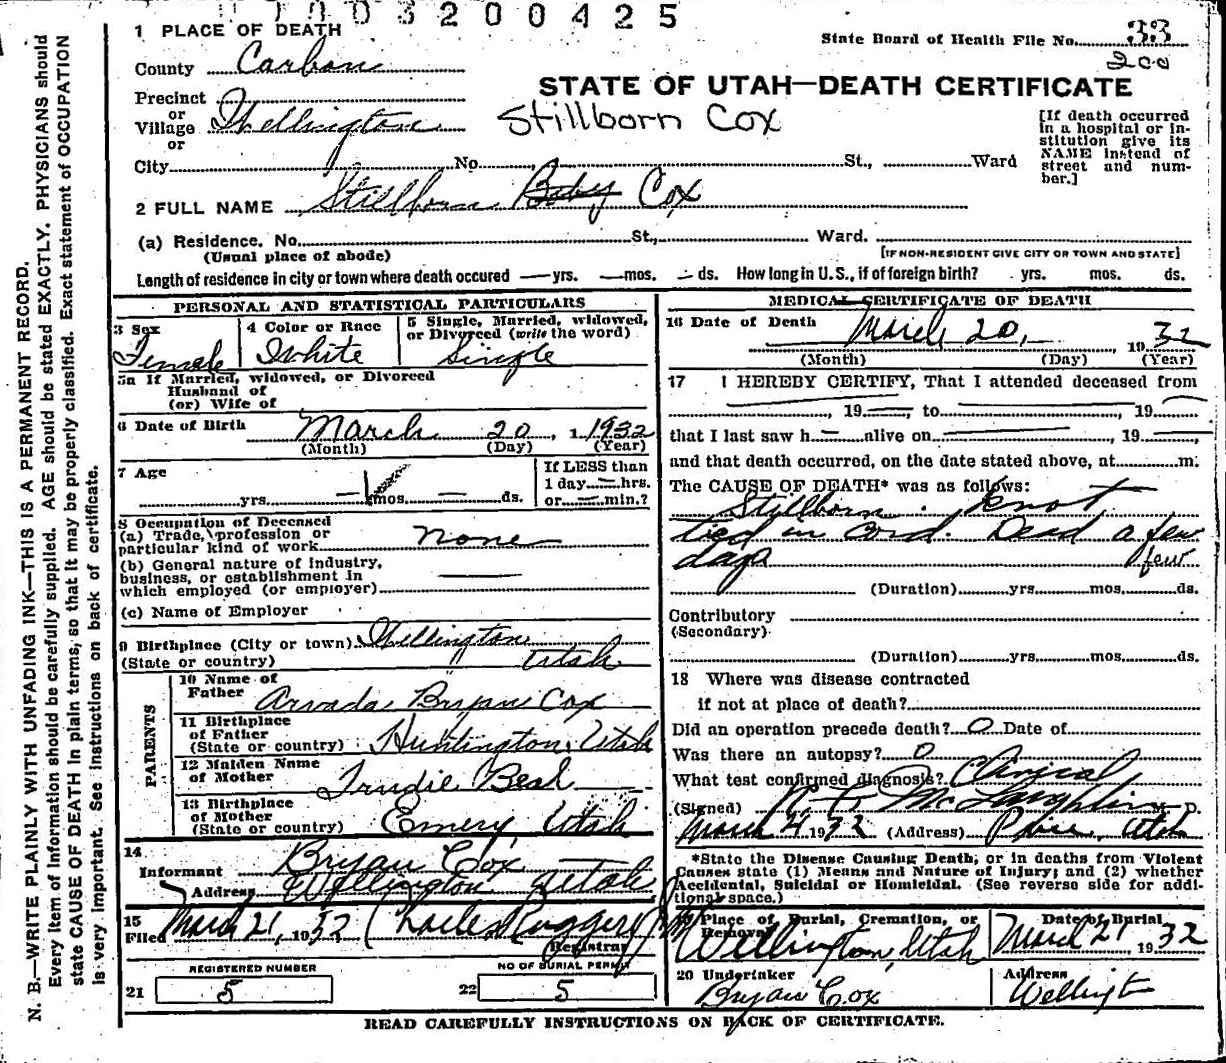 003200425
1 PLACE OF DEATH
State Board of Health File No. 33
200
County Carbon
STATE OF UTAH—DEATH CERTIFICATE
Precinct
or
Village Wellington
or
Stillborn Cox
[If death occurred
in a hospital or in-
stitution give its
NAME instead of
street and num-
ber.]
City No. St., Ward
2 FULL NAME Stillborn Baby Cox
(a) Residence. No. St., Ward.
(Usual place of abode)
[IF NON-RESIDENT GIVE CITY OR TOWN AND STATE]
Length of residence in city or town where death occured — yrs. — mos. — ds. How long in U.S., if of foreign birth? yrs. mos. ds.
PERSONAL AND STATISTICAL PARTICULARS
3 Sex
Female
4 Color or Race
White
5 Single, Married, widowed,
or Divorced (write the word)
Single
5a If Married, widowed, or Divorced
Husband of
(or) Wife of
6 Date of Birth March 20, 1932
(Month) (Day) (Year)
7 Age
yrs. — mos. — ds.
If LESS than
1 day — hrs.
or — min.?
8 Occupation of Deceased
(a) Trade, profession or
particular kind of work None
(b) General nature of industry,
business, or establishment in
which employed (or employer)
(c) Name of Employer
9 Birthplace (City or town) Wellington
(State or country) Utah
PARENTS
10 Name of
Father Arvada Bryan Cox
11 Birthplace
of Father
(State or country) Huntington, Utah
12 Maiden Name
of Mother Trudie Beal
13 Birthplace
of Mother
(State or country) Emery, Utah
14
Informant Bryan Cox
Address Wellington Utah
15
Filed March 21, 1932
Registrar
REGISTERED NUMBER
21 5
NO OF BURIAL PERMIT
22 5
MEDICAL CERTIFICATE OF DEATH
16 Date of Death March 20, 1932
(Month) (Day) (Year)
17 I HEREBY CERTIFY, That I attended deceased from
, 19 —, to — 19
that I last saw h — alive on — , 19 —,
and that death occurred, on the date stated above, at m.
The CAUSE OF DEATH* was as follows:
Stillborn. knot
tied in cord. Dead a few
days few
(Duration) yrs. mos. ds.
Contributory
(Secondary)
(Duration) yrs. mos. ds.
18 Where was disease contracted
if not at place of death?
Did an operation precede death? 0 Date of
Was there an autopsy? 0
What test confirmed diagnosis? Clinical
(Signed) McLaughlin M. D.
March 21 1932 (Address) Price, Utah
*State the Disease Causing Death, or in deaths from Violent
Causes state (1) Means and Nature of Injury; and (2) whether
Accidental, Suicidal or Homicidal. (See reverse side for addi-
tional space.)
19 Place of Burial, Cremation, or
Removal
Wellington, Utah
Date of Burial
March 21 1932
20 Undertaker
Bryan Cox
Address
READ CAREFULLY INSTRUCTIONS ON BACK OF CERTIFICATE.
N. B.—WRITE PLAINLY WITH UNFADING INK—THIS IS A PERMANENT RECORD.
Every item of information should be carefully supplied. AGE should be stated EXACTLY. PHYSICIANS should
state CAUSE OF DEATH in plain terms, so that it may be properly classified. Exact statement of OCCUPATION
is very important. See instructions on back of certificate.